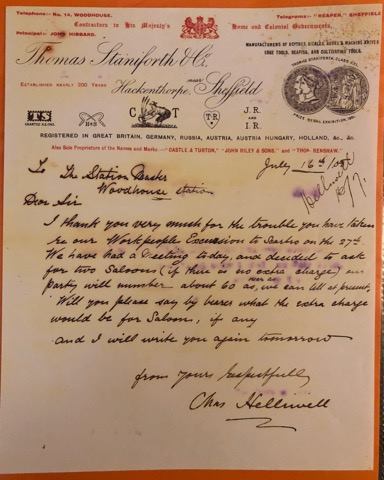 Telephone:- No. 14, WOODHOUSE.
Telegrams:- "REAPER," SHEFFIELD
Contractors to His Majesty's Home and Colonial Governments.
Principal:- JOHN HIBBARD.
Thomas Staniforth & Co.
MANUFACTURERS OF SCYTHES, SICKLES, HOOKS & MACHINE KNIVES
EDGE TOOLS, REAPING, AND CULTIVATING TOOLS.
ESTABLISHED NEARLY 200 YEARS
Hackenthorpe, Sheffield
THOMAS STANIFORTH
PRIZE MEDAL EXHIBITION, 1851
TS
C T
T·R
J.R.
AND
I.R.
REGISTERED IN GREAT BRITAIN, GERMANY, RUSSIA, AUSTRIA, AUSTRIA HUNGARY, HOLLAND, &c., &c.
Also Sole Proprietors of the Names and Marks "CASTLE & TURTON," "JOHN RILEY & SONS," and "THOS. RENSHAW."
July 16th
Helliwell
To The Station Master
Woodhouse Station
Dear Sir
I thank you very much for the trouble you have taken
re our Workpeople Excursion to on the 27th
We have had a Meeting today, and decided to ask
for two Saloons (if there is no extra charge) our
party will number about 60 as near as we can tell at present,
Will you please say by bearer what the extra charge
would be for Saloons, if any
and I will write you again tomorrow
from Yours Respectfully
Chas Helliwell